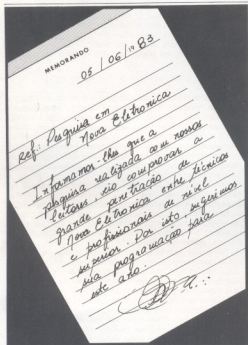 MEMORANDO
05 / 06 / 19 83
Ref.: Pesquisa em
Nova Eletronica
Informamos-lhes que a
pesquisa realizada com nossos
leitores, veio comprovar a
grande penetração de
Nova Eletronica entre técnicos
e profissionais de nível
superior. Por isto sugerimos
sua programação para
este ano.